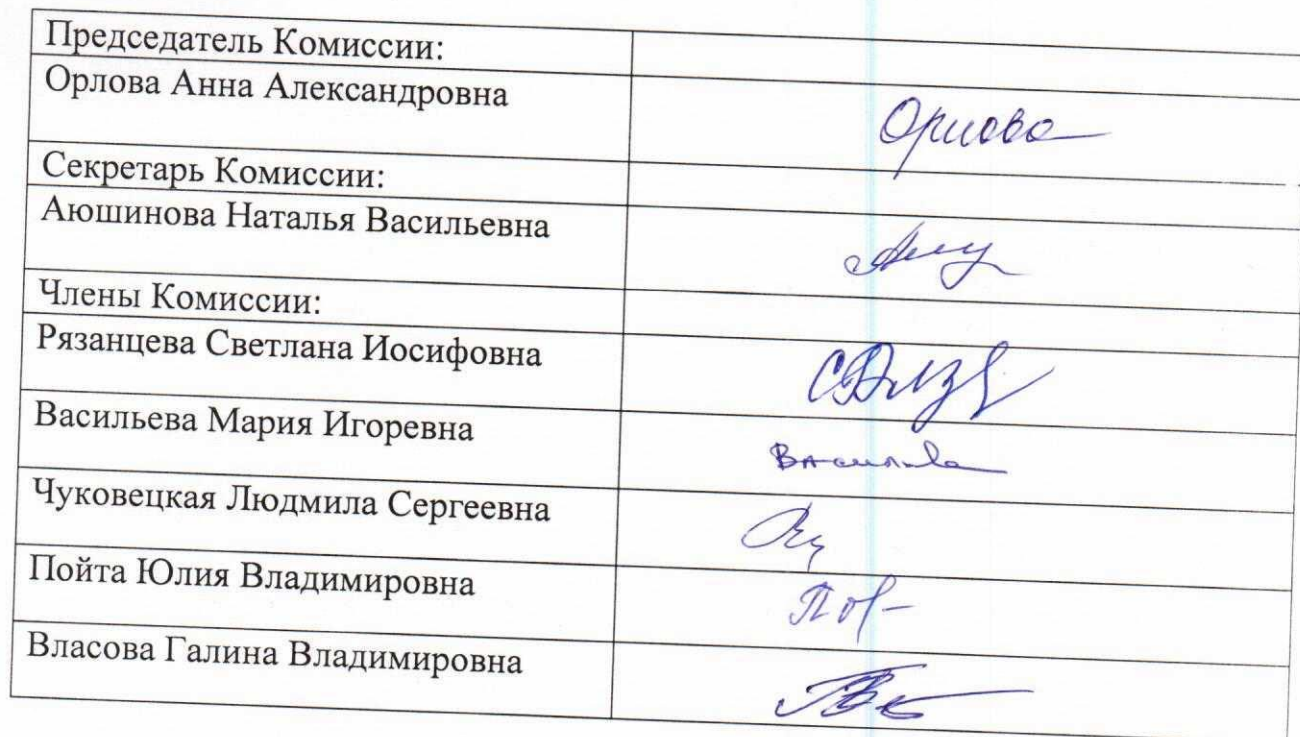 Председатель Комиссии:
Орлова Анна Александровна
Орлова
Секретарь Комиссии:
Аюшинова Наталья Васильевна
Члены Комиссии:
Рязанцева Светлана Иосифовна
Васильева Мария Игоревна
Чуковецкая Людмила Сергеевна
Пойта Юлия Владимировна
Власова Галина Владимировна